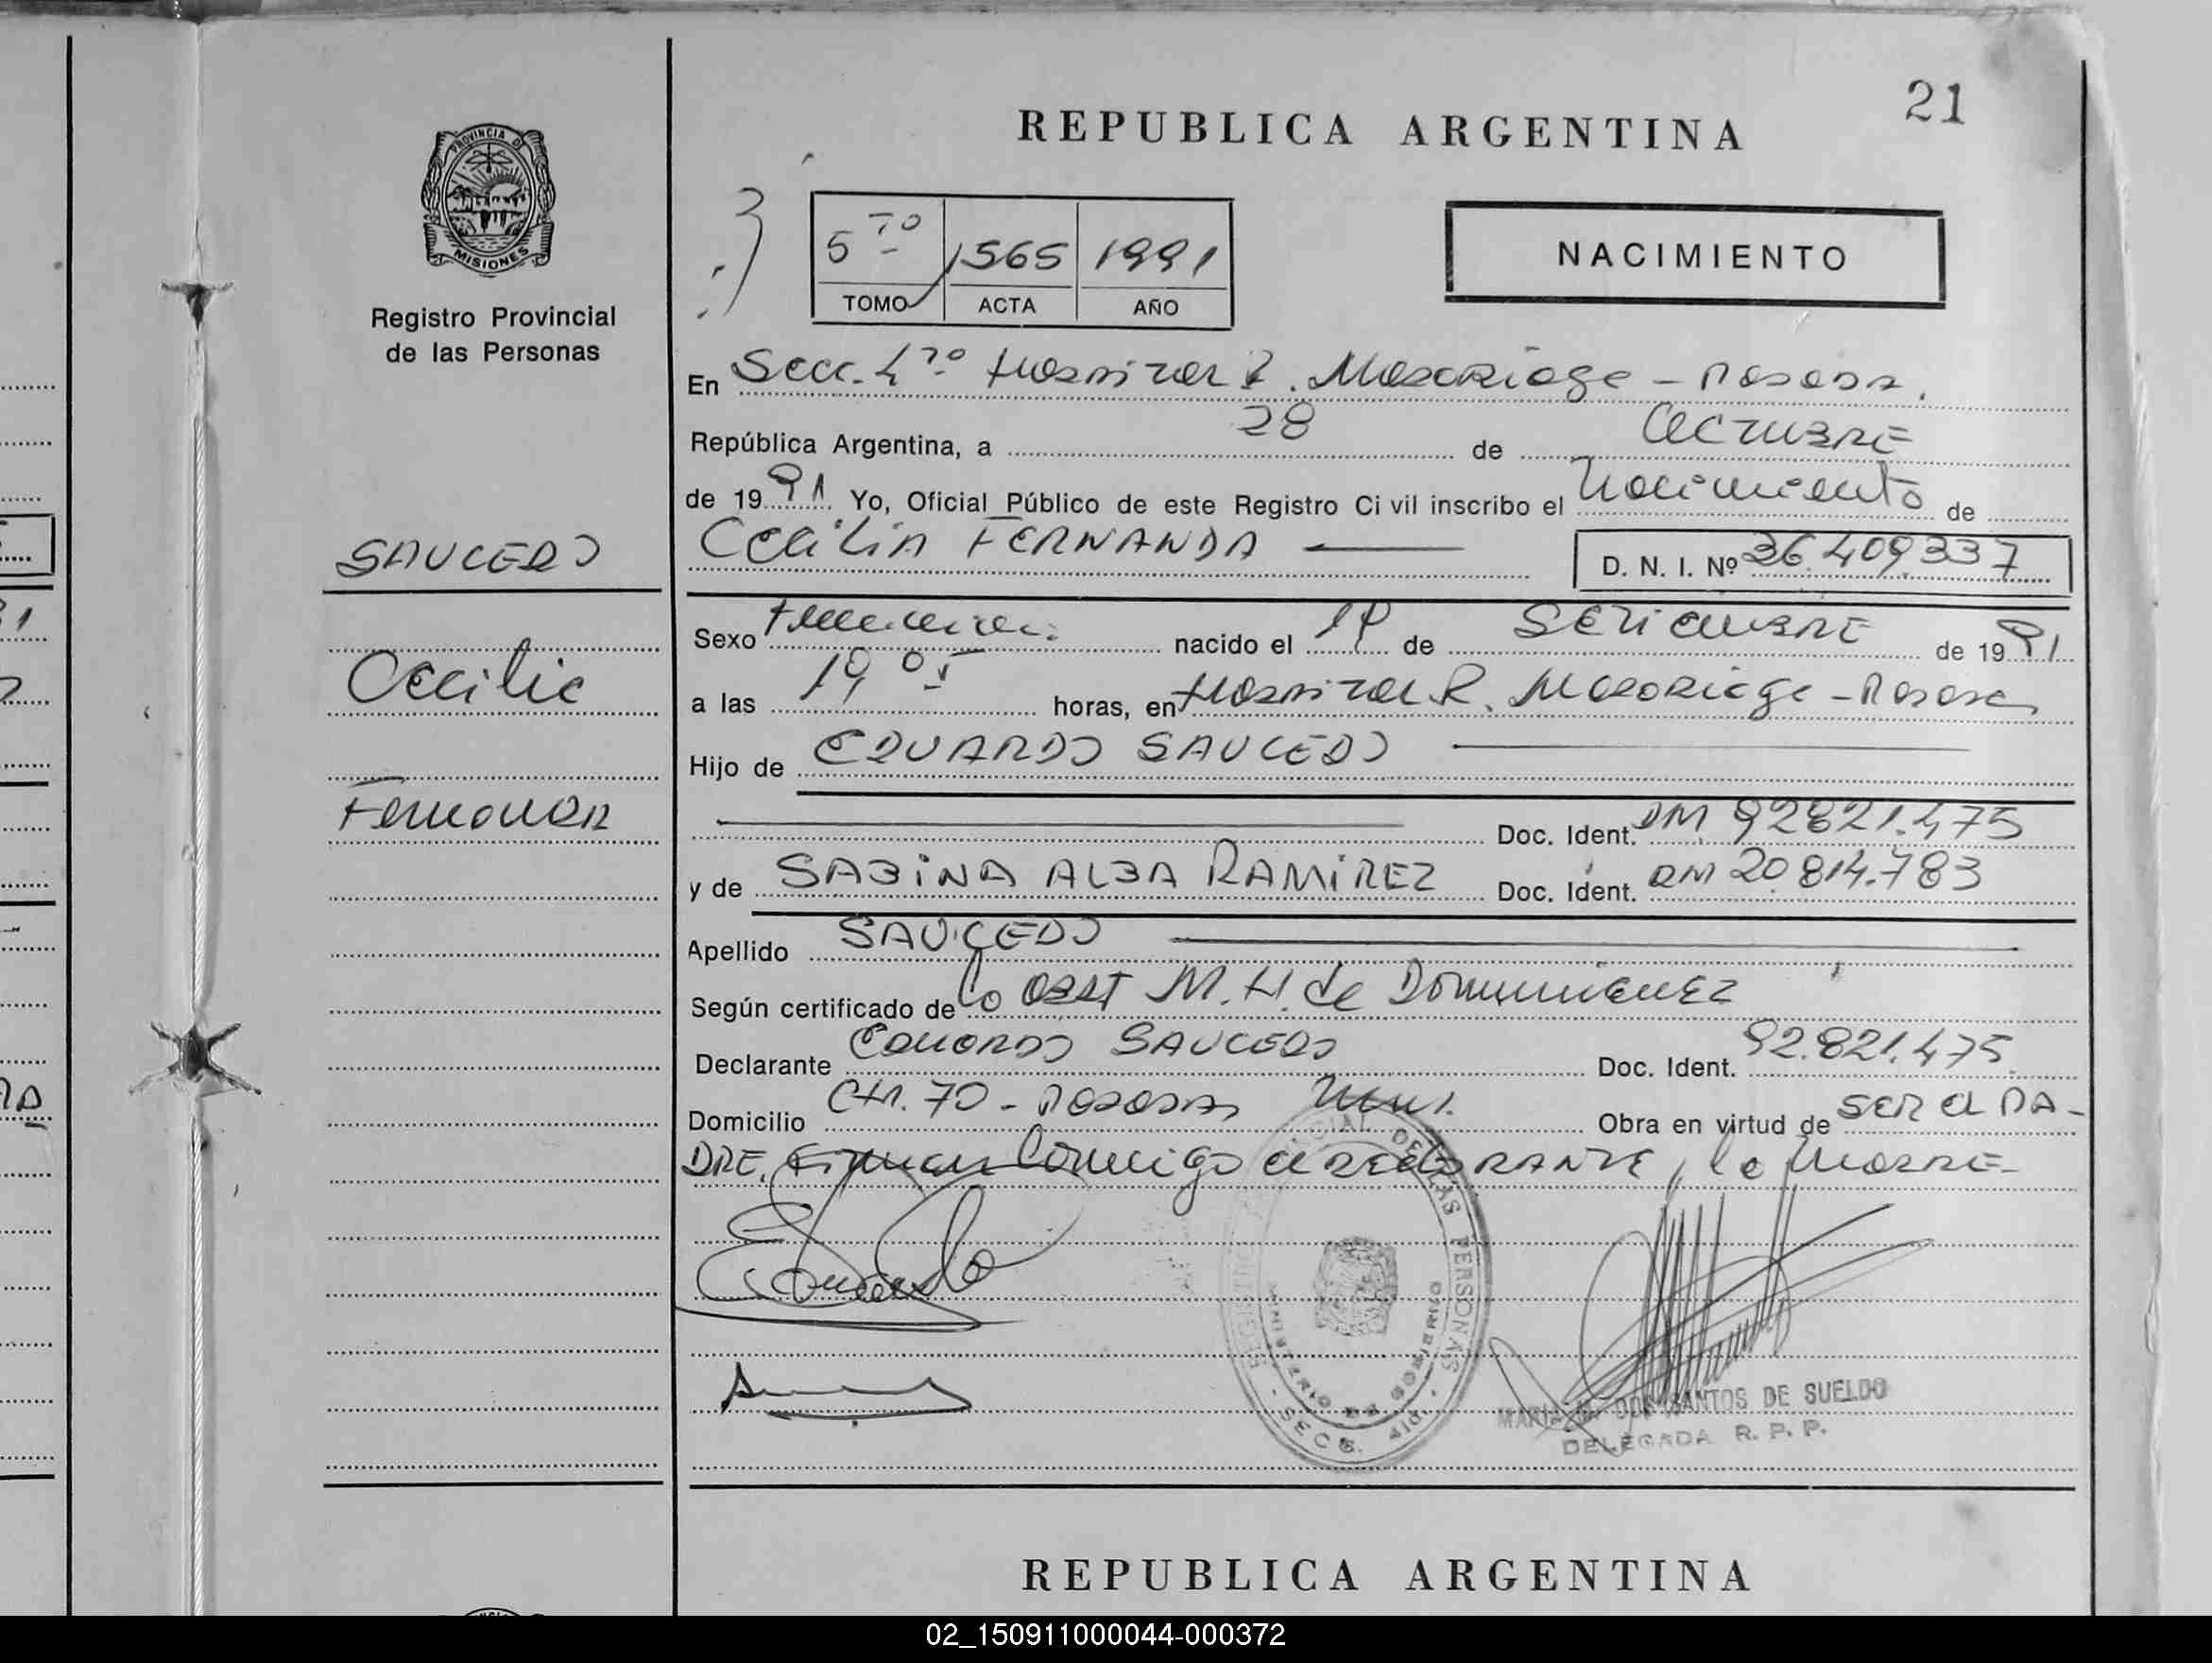 21
REPUBLICA ARGENTINA
PROVINCIA DE
MISIONES
Registro Provincial
de las Personas
5to 1565 1991
TOMO ACTA AÑO
NACIMIENTO
En Secc. 4ta Hospital R. Madariaga - Posadas.
República Argentina, a 28 de Octubre
de 1991 Yo, Oficial Público de este Registro Civil inscribo el Nacimiento de
SAUCEDO
Cecilia FERNANDA
D. N. I. Nº 36.409.337
Sexo Femenino nacido el 14 de SETIEMBRE de 1991
Cecilia
a las 19,05 horas, en Hospital R. Madariaga - Posadas
Hijo de EDUARDO SAUCEDO
Fernanda
Doc. Ident. DM 92821.475
y de SABINA ALBA RAMIREZ Doc. Ident. DM 20.814.783
Apellido SAUCEDO
Según certificado de la OBST M. H. de Dominguez
Declarante Eduardo SAUCEDO Doc. Ident. 92.821.475
Domicilio CH. 70 - Posadas Mnes. Obra en virtud de SER el PA-
DRE. Firman Conmigo el DECLARANTE, la Madre
Eduardo
REGISTRO PROVINCIAL DE LAS PERSONAS
MINISTERIO DE GOBIERNO
SECC. 4ta.
MARIA DOS SANTOS DE SUELDO
DELEGADA R. P. P.
REPUBLICA ARGENTINA
02_150911000044-000372